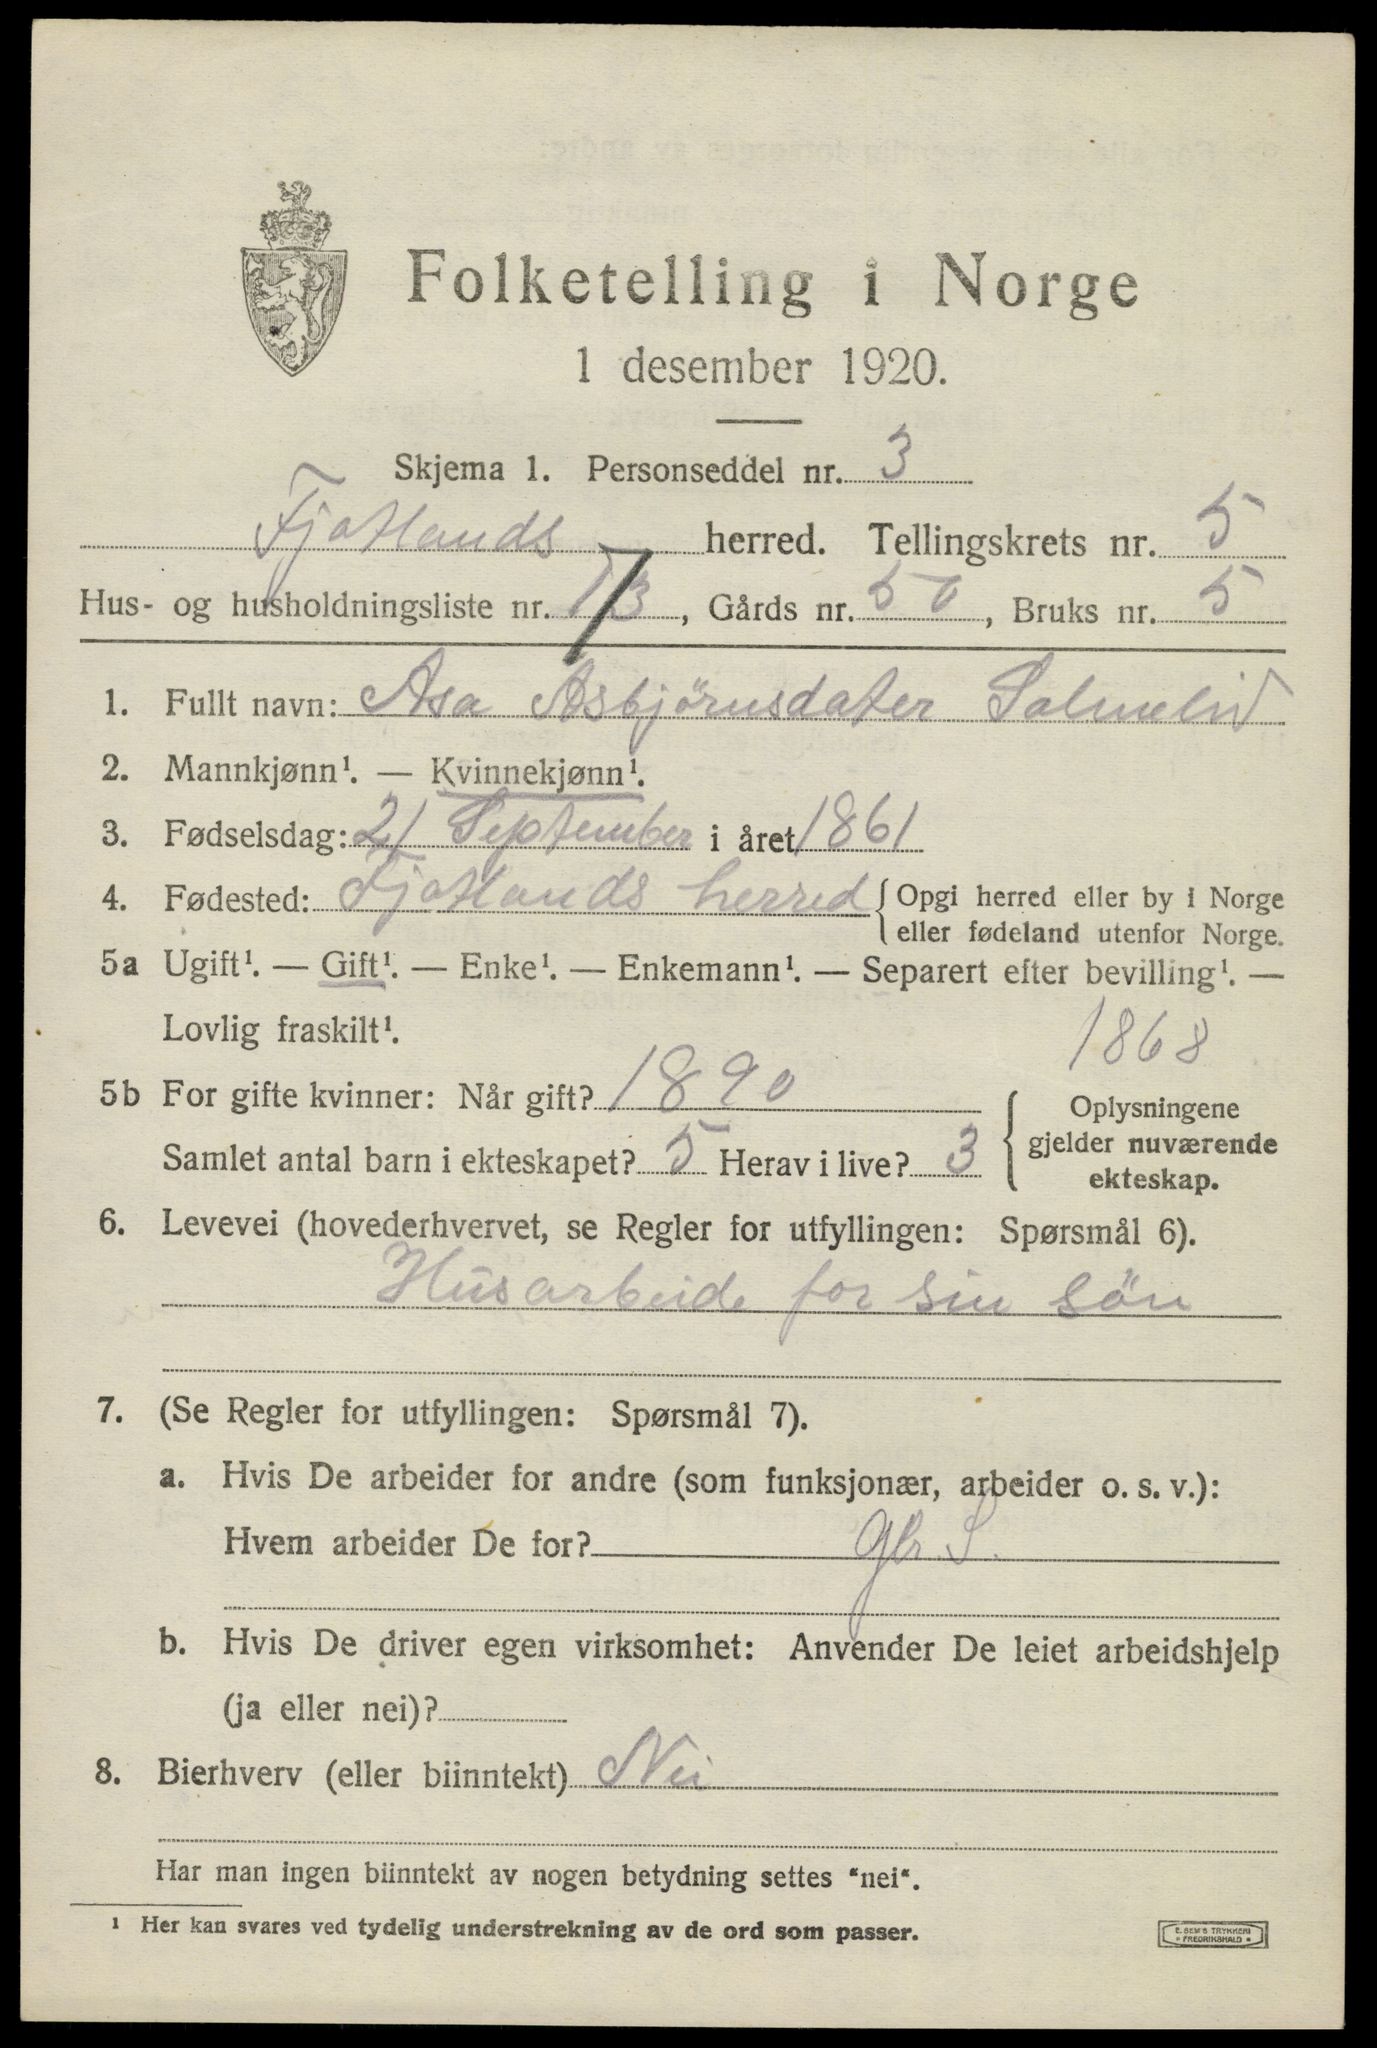 Folketelling i Norge
1 desember 1920.
Skjema 1. Personseddel nr. 3
Fjotlands herred. Tellingskrets nr. 5
Hus- og husholdningsliste nr. 13, Gårds nr. 50, Bruks nr. 5
1. Fullt navn: Asa Asbjörnsdater Salmelid
2. Mannkjønn¹. — Kvinnekjønn¹.
3. Fødselsdag: 21 September i året 1861
4. Fødested: Fjotlands herred { Opgi herred eller by i Norge
eller fødeland utenfor Norge.
5a Ugift¹. — Gift¹. — Enke¹. — Enkemann¹. — Separert efter bevilling¹. —
Lovlig fraskilt¹.
1868
5b For gifte kvinner: Når gift? 1890
Samlet antal barn i ekteskapet? 5 Herav i live? 3
{ Oplysningene
gjelder nuværende
ekteskap.
6. Levevei (hovederhvervet, se Regler for utfyllingen: Spørsmål 6).
Husarbeide for sin sön
7. (Se Regler for utfyllingen: Spørsmål 7).
a. Hvis De arbeider for andre (som funksjonær, arbeider o. s. v.):
Hvem arbeider De for? Gbr. S.
b. Hvis De driver egen virksomhet: Anvender De leiet arbeidshjelp
(ja eller nei)?
8. Bierhverv (eller biinntekt) Nei
Har man ingen biinntekt av nogen betydning settes "nei".
¹ Her kan svares ved tydelig understrekning av de ord som passer.
E. SEM'S TRYKKERI
FREDRIKSHALD